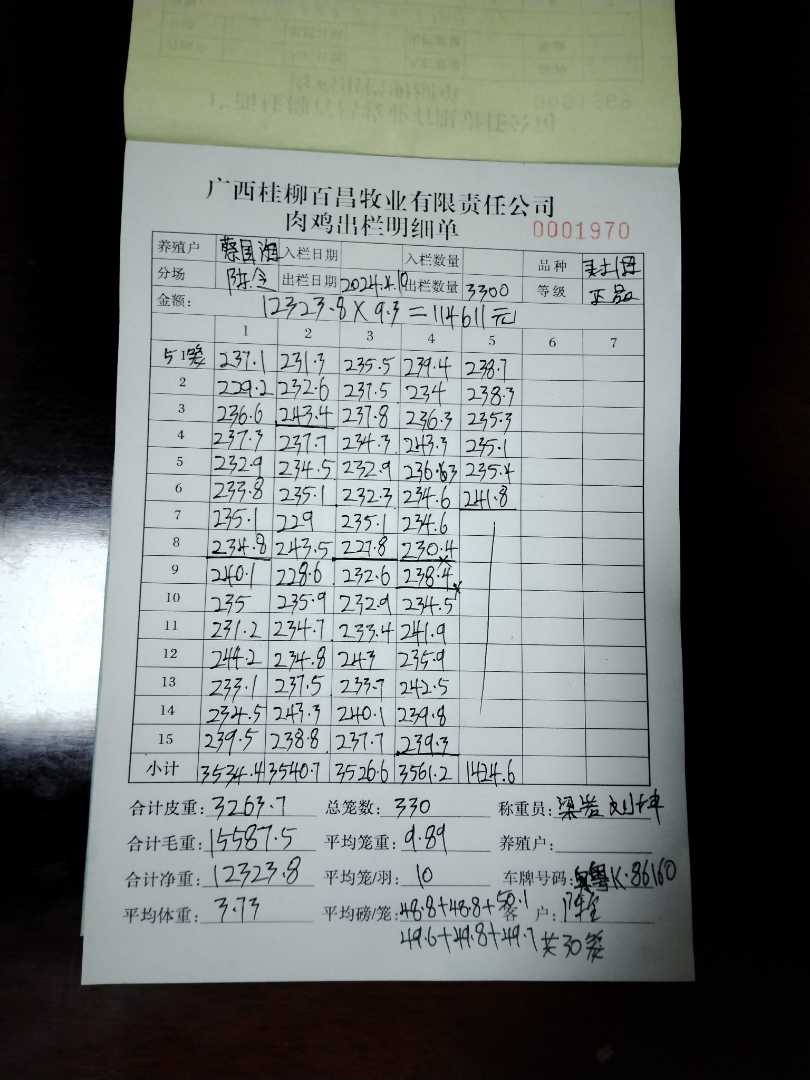 广西桂柳百昌牧业有限责任公司
肉鸡出栏明细单 0001970
养殖户 蔡国 入栏日期 入栏数量 品种
分场 陈全 出栏日期 2024.4.10 出栏数量 3300 等级 正品
金额: 12323.8×9.3=114611元
1 2 3 4 5 6 7
51笼 237.1 231.3 235.5 239.4 238.7
2 229.2 232.6 237.5 234 238.3
3 236.6 243.4 237.8 236.3 235.3
4 237.3 237.7 234.3 243.3 235.1
5 232.9 234.5 232.9 236.63 235.4
6 233.8 235.1 232.3 234.6 241.8
7 235.1 229 235.1 234.6
8 234.8 243.5 227.8 230.4
9 240.1 228.6 232.6 238.4
10 235 235.9 232.9 234.5
11 231.2 234.7 233.4 241.9
12 244.2 234.8 243 235.9
13 233.1 237.5 233.7 242.5
14 234.5 243.3 240.1 239.8
15 239.5 238.8 237.7 239.3
小计 3534.4 3540.7 3526.6 3561.2 1424.6
合计皮重: 3263.7 总笼数: 330 称重员: 梁岩
合计毛重: 15587.5 平均笼重: 9.89 养殖户:
合计净重: 12323.8 平均笼/羽: 10 车牌号码: 粤K·86160
平均体重: 3.73 平均磅/笼: 48.8+48.8+50.1 客 户:
49.6+49.8+49.7 共30笼